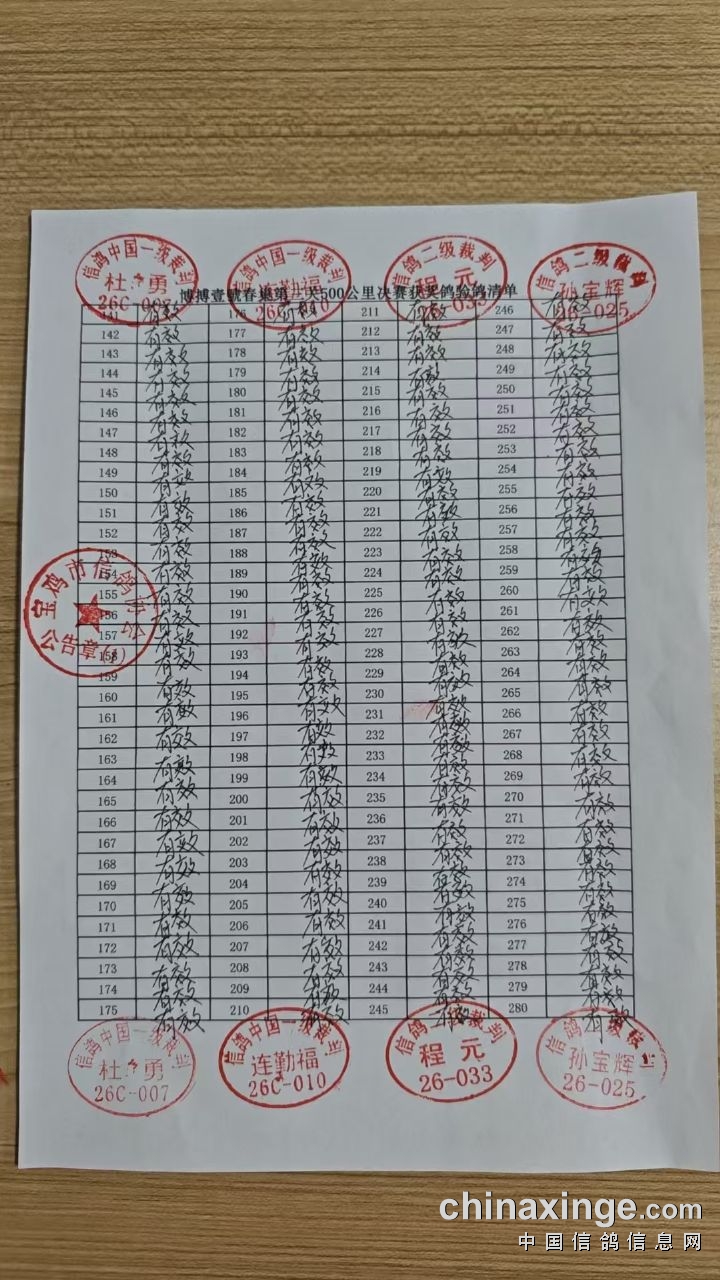 信鸽中国一级裁判
杜 勇
26C-007
信鸽中国一级裁判
连勤福
信鸽二级裁判
程元
26-033
信鸽二级裁判
孙宝辉
26-025
博搏壹號春 第 关500公里决赛获奖鸽验鸽清单
141 有效 176 有效 211 有效 246 有效
142 有效 177 有效 212 有效 247 有效
143 有效 178 有效 213 有效 248 有效
144 有效 179 有效 214 有效 249 有效
145 有效 180 有效 215 有效 250 有效
146 有效 181 有效 216 有效 251 有效
147 有效 182 有效 217 有效 252 有效
148 有效 183 有效 218 有效 253 有效
149 有效 184 有效 219 有效 254 有效
150 有效 185 有效 220 有效 255 有效
151 有效 186 有效 221 有效 256 有效
152 有效 187 有效 222 有效 257 有效
153 有效 188 有效 223 有效 258 有效
154 有效 189 有效 224 有效 259 有效
155 有效 190 有效 225 有效 260 有效
156 有效 191 有效 226 有效 261 有效
157 有效 192 有效 227 有效 262 有效
158 有效 193 有效 228 有效 263 有效
159 有效 194 有效 229 有效 264 有效
160 有效 195 有效 230 有效 265 有效
161 有效 196 有效 231 有效 266 有效
162 有效 197 有效 232 有效 267 有效
163 有效 198 有效 233 有效 268 有效
164 有效 199 有效 234 有效 269 有效
165 有效 200 有效 235 有效 270 有效
166 有效 201 有效 236 有效 271 有效
167 有效 202 有效 237 有效 272 有效
168 有效 203 有效 238 有效 273 有效
169 有效 204 有效 239 有效 274 有效
170 有效 205 有效 240 有效 275 有效
171 有效 206 有效 241 有效 276 有效
172 有效 207 有效 242 有效 277 有效
173 有效 208 有效 243 有效 278 有效
174 有效 209 有效 244 有效 279 有效
175 有效 210 有效 245 有效 280 有效
宝鸡市信鸽协会
公告章
信鸽中国一级裁判
杜 勇
26C-007
信鸽中国一级裁判
连勤福
26C-010
信鸽二级裁判
程元
26-033
信鸽二级裁判
孙宝辉
26-025
chinaxinge.com
中国信鸽信息网